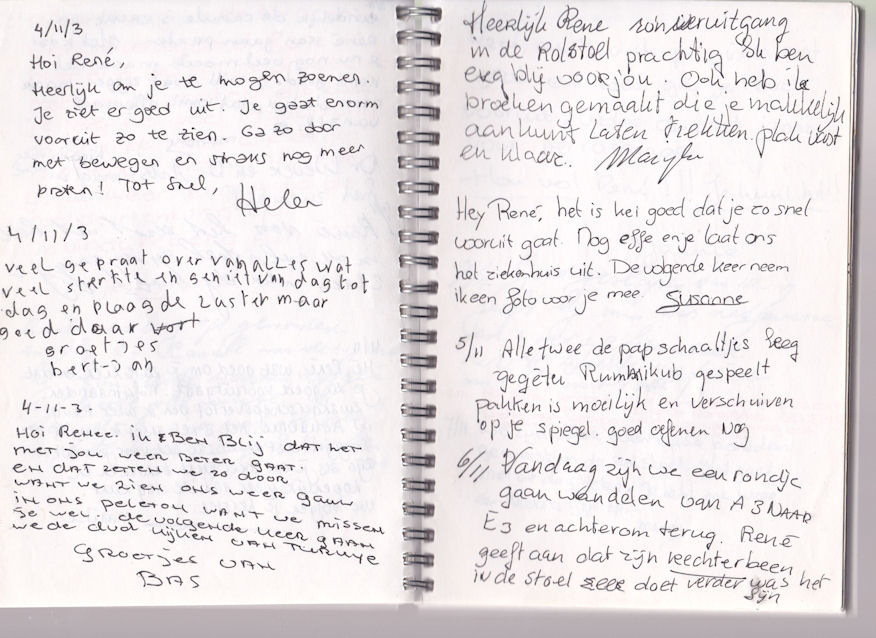 4/11/3
Hoi René,
Heerlijk om je te mogen zoenen.
Je ziet er goed uit. Je gaat enorm
vooruit zo te zien. Ga zo door
met bewegen en straks nog meer
praten! Tot snel,
Helen
4/11/3
veel gepraat over van alles wat
veel sterkte en geniet van dag tot
dag en plaag de zuster maar
goed daar vort
groetjes
bert-Jan
4-11-3.
Hoi Renee. ik Ben Blij dat het
met jou weer Beter gaat.
en dat zetten we zo door
want we zien ons weer gauw
in ons peleton want we missen
je wel. de volgende keer gaan
we de
Groetjes van
Bas
Heerlijk Rene vooruitgang
in de Rolstoel prachtig Ik ben
erg blij voor jou. Ook heb ik
broeken gemaakt die je makkelijk
aan kunt Laten plak vast
en klaar.
Hey René, het is kei goed dat je zo snel
vooruit gaat. Nog effe en je laat ons
het ziekenhuis uit. De volgende keer neem
ik een foto voor je mee. Susanne
5/11 Alle twee de papschaaltjes leeg
gegeten Rummikub gespeelt
pakken is moeilijk en verschuiven
op je spiegel. goed oefenen nog
6/11 Vandaag zijn we een rondje
gaan wandelen van A3 NAAR
E3 en achterom terug. René
geeft aan dat zijn rechterbeen
in de stoel zeer doet verder was het
fijn